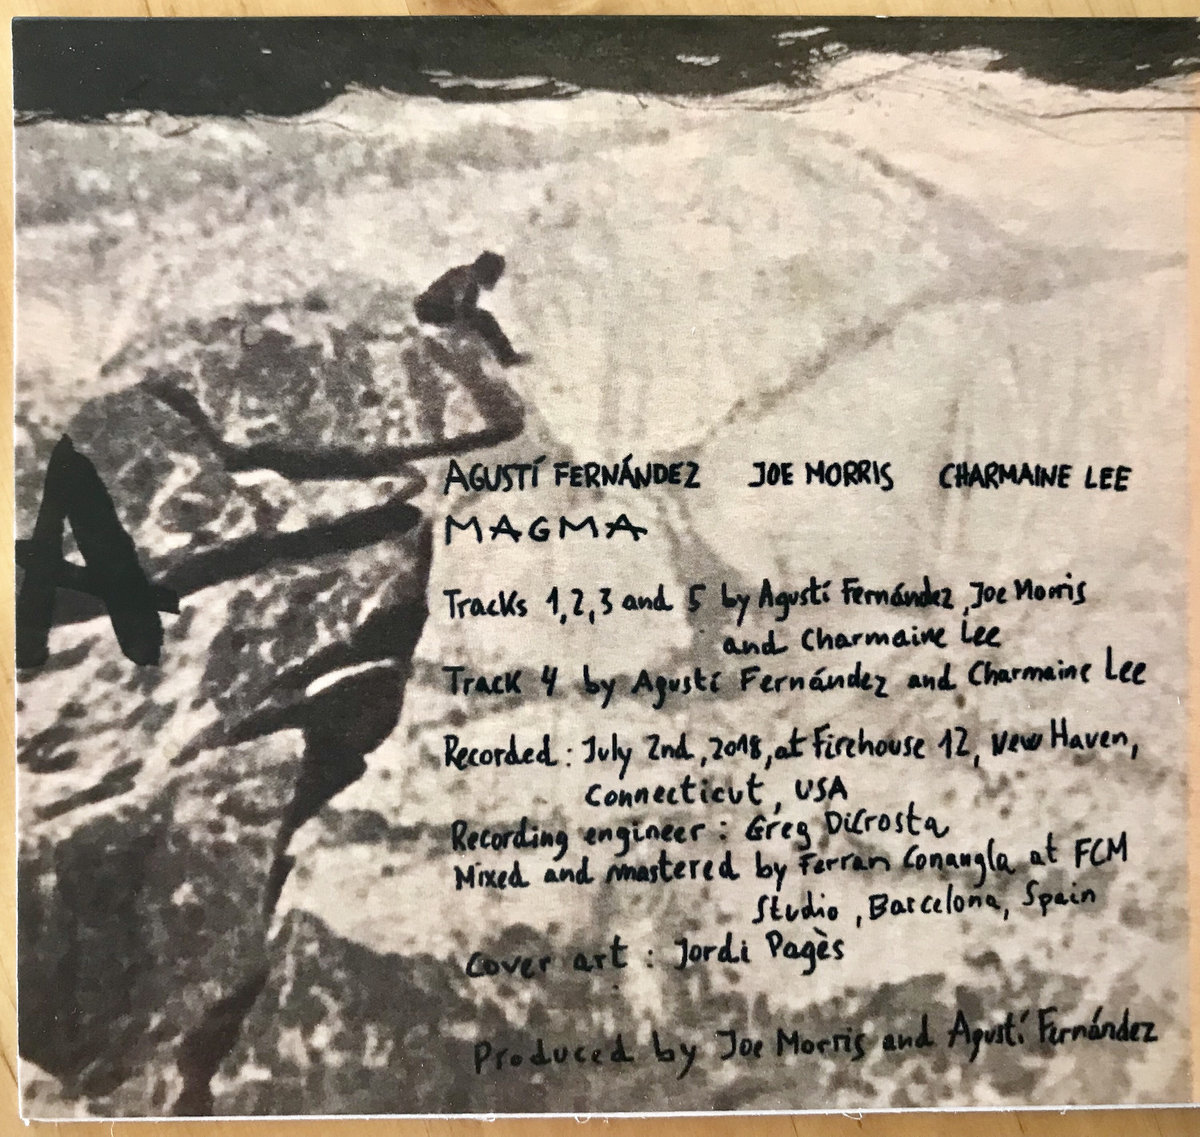 A
AGUSTÍ FERNÁNDEZ JOE MORRIS CHARMAINE LEE
MAGMA
Tracks 1, 2, 3 and 5 by Agustí Fernández, Joe Morris
and Charmaine Lee
Track 4 by Agustí Fernández and Charmaine Lee
Recorded: July 2nd, 2018, at Firehouse 12, New Haven,
Connecticut, USA
Recording engineer: Greg DiCrosta
Mixed and mastered by Ferran Conangla at FCM
Studio, Barcelona, Spain
Cover art: Jordi Pagès
Produced by Joe Morris and Agustí Fernández